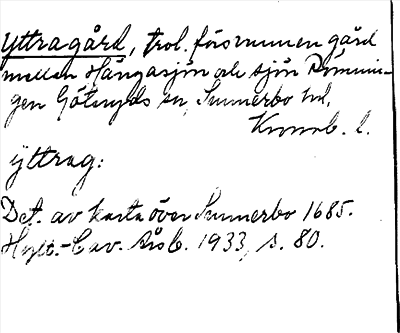 Yttragård, trol. försvunnen gård
mellan Hängasjön och sjön Römnin-
gen Göteryds sn, Sunnerbo hd,
Kronob. l.
yttrag:
Det. av karta över Sunnerbo 1685.
Hylt.-Cav. Årsb. 1933, s. 80.